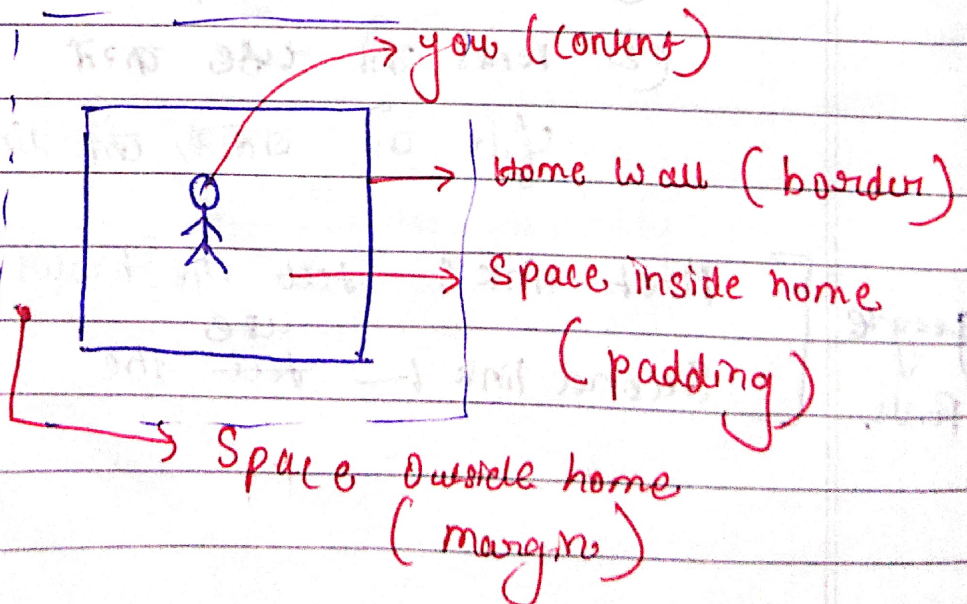 you (content)
Home wall (border)
Space inside home
(padding)
Space outside home
(margin)